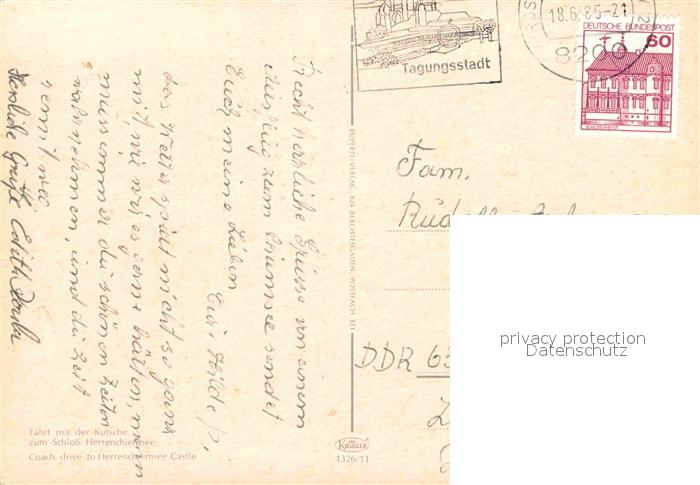 Recht herzliche Grüsse von einem
Ausflug zum Chiemsee sendet
Euch meine Lieben
Eure Hilde
das Wetter spielt nicht so ganz
mit wie wir es gerne hätten, man
muss immer die schönen Zeiten
wahrnehmen, und die Zeit
rennt weg
Herzliche Grüße Edith
Fahrt mit der Kutsche
zum Schloß Herrenchiemsee
Coach drive to Herrenchiemsee Castle
RUPERTI-VERLAG, 824 BERCHTESGADEN, POSTFACH 331
Krüger
1326/11
Tagungsstadt
18.6.85-21
8200
DEUTSCHE BUNDESPOST
60
Fam.
DDR
privacy protection
Datenschutz